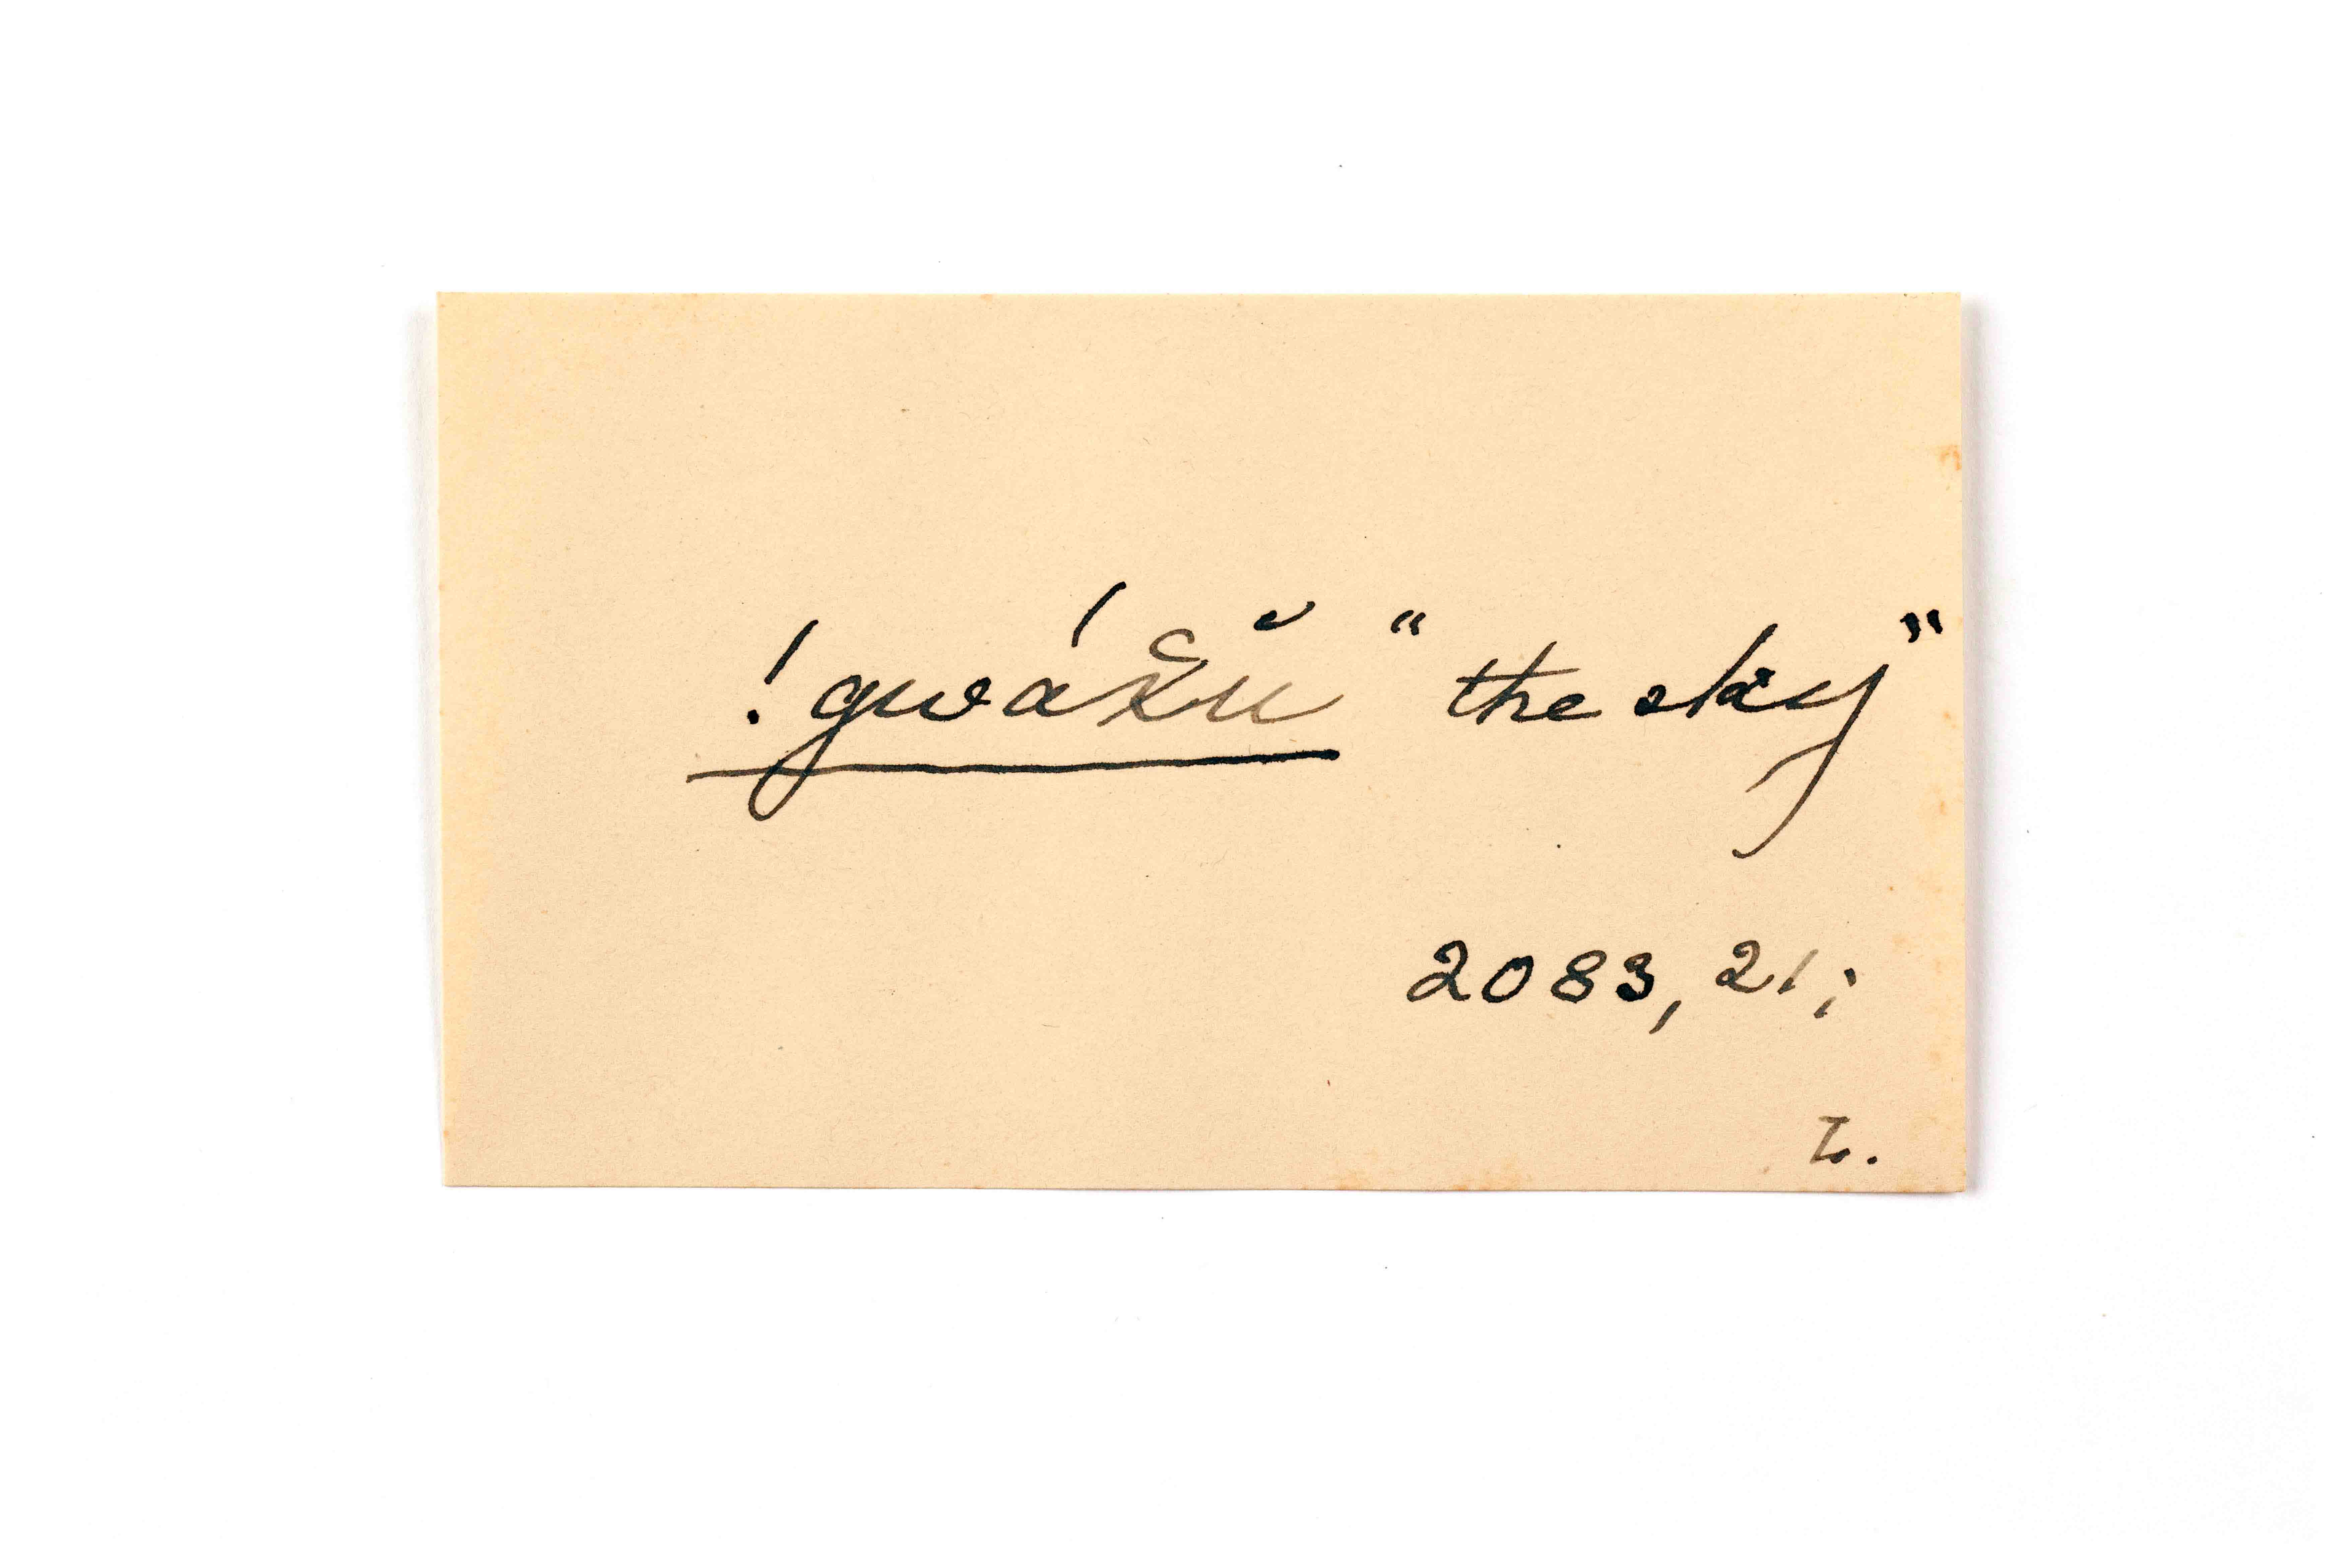 !gwáx̆ŭ “the sky”
2083, 21;
L.